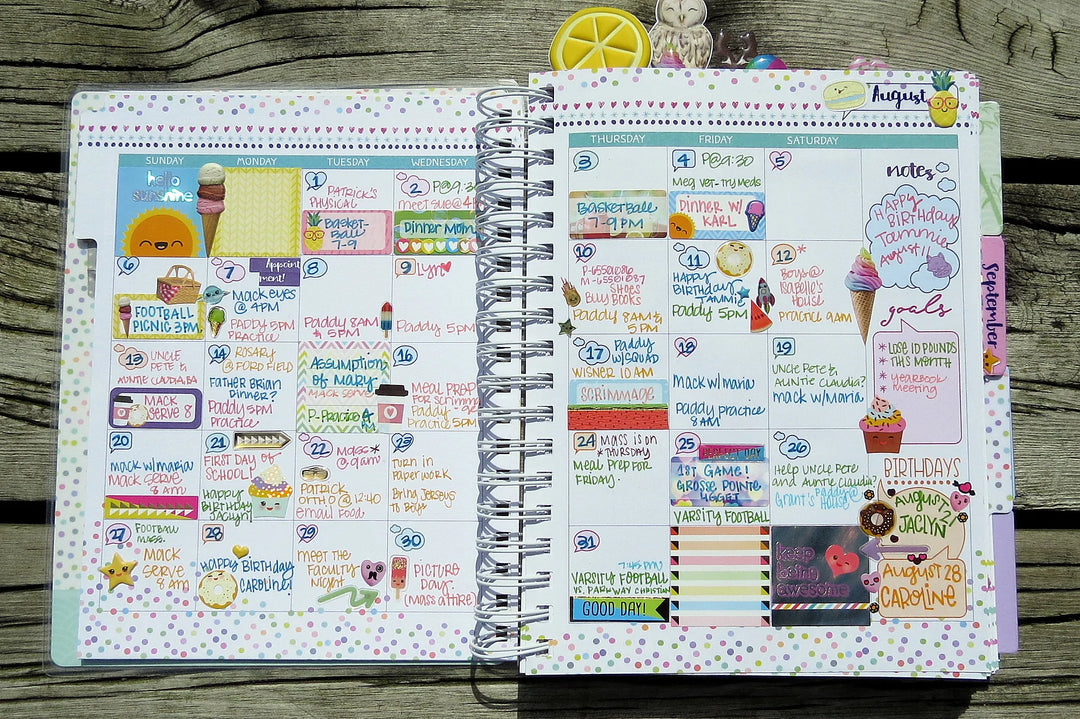 August
SUNDAY MONDAY TUESDAY WEDNESDAY
THURSDAY FRIDAY SATURDAY
hello
sunshine
1
PATRICK'S
PHYSICAL
BASKET-
BALL
7-9
2
P@9:30
meet sue@4
Dinner Mom
3
BASKETBALL
7-9 PM
4 P@9:30
Meg vet-try meds
Dinner w/
KARL
5
notes
HAPPY
Birthday
Tammie
August 11
6
FOOTBALL
PICNIC 3PM
7
Appoint
ment!
Mack eyes
@ 4PM
PADDY 5PM
PRACTICE
8
Paddy 8AM
& 5PM
9 Lyn
Paddy 5pm
10
SHOES
BUY BOOKS
Paddy 8AM &
5 PM
11
HAPPY
BIRTHDAY
TAMMIE
Paddy 5PM
12 *
Boys@
Isabelle's
House
Practice 9AM
goals
* LOSE 10 POUNDS
THIS MONTH
* Yearbook
Meeting
13 UNCLE
PETE &
AUNTIE CLAUDIA BA
MACK
SERVE 8
14 @ ROSARY
@ FORD FIELD
FATHER BRIAN
DINNER?
Paddy 5PM
PRACTICE
Assumption
of Mary-
MACK SERVE
P-Practice
16
MEAL PREP
FOR SCRIMM
Paddy
Practice 5PM
17
Paddy
w/SQUAD
WISNER 10 AM
SCRIMMAGE
18
Mack w/maria
Paddy practice
8AM
19
UNCLE PETE &
AUNTIE CLAUDIA?
mack w/Maria
20
Mack w/maria
Mack Serve
8 AM
21
FIRST DAY OF
SCHOOL!
Happy
Birthday
Jaclyn
22 MASS*
@ 9am
PATRICK
ORTHO @ 12:40
email Food
23
Turn in
Paperwork
Bring Jerseys
to Boys
24 * MASS IS ON
* THURSDAY
MEAL PREP FOR
FRIDAY.
25
PERFECT DAY
1ST GAME!
GROSSE POINTE
VARSITY FOOTBALL
26
HELP UNCLE PETE
and AUNTIE CLAUDIA?
Paddy@
Grant's House
BIRTHDAYS
August 21
JACLYN
27 FOOTBALL
MASS.
Mack
Serve
8 AM
28
HAPPY Birthday
CAROLINE!
29
MEET THE
FACULTY
NIGHT
30
PICTURE
DAY.
(Mass attire)
31
7:45 PM
VARSITY FOOTBALL
VS. PARKWAY CHRISTIAN
GOOD DAY!
keep
being
awesome
August 28
CAROLINE
September